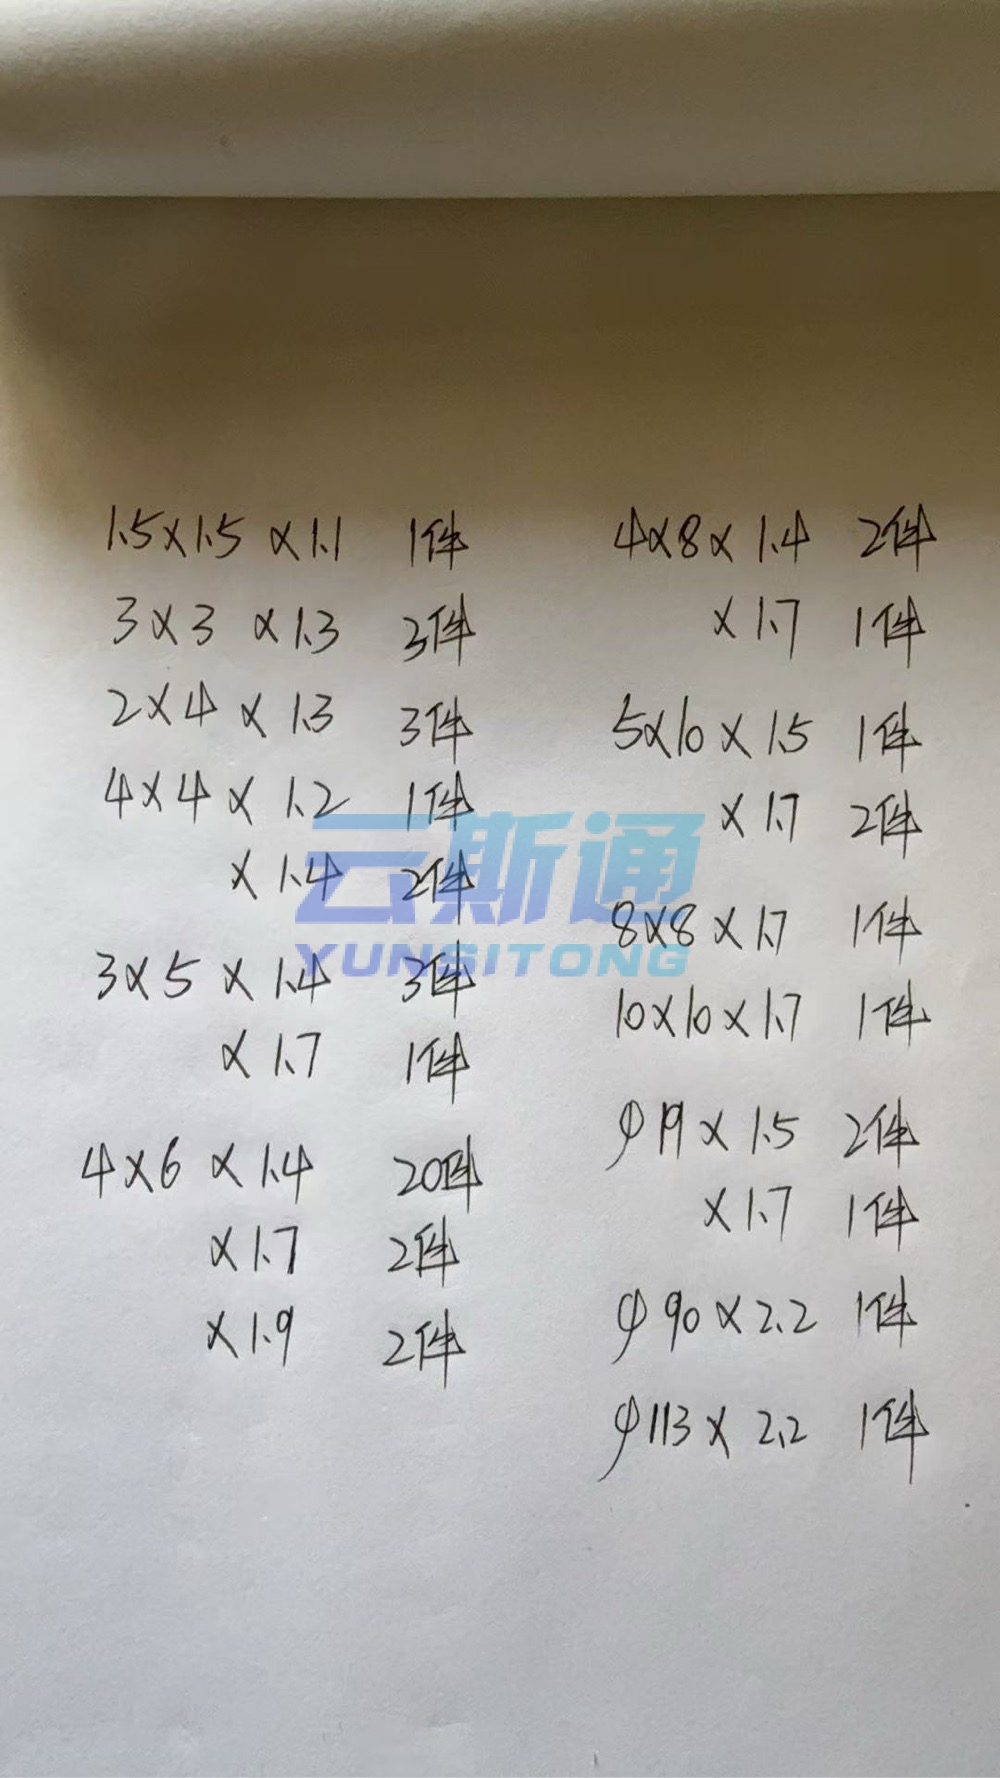 1.5×1.5×1.1 1件
3×3×1.3 3件
2×4×1.3 3件
4×4×1.2 1件
×1.4 2件
3×5×1.4 3件
×1.7 1件
4×6×1.4 20件
×1.7 2件
×1.9 2件
4×8×1.4 2件
×1.7 1件
5×10×1.5 1件
×1.7 2件
8×8×1.7 1件
10×10×1.7 1件
φ19×1.5 2件
×1.7 1件
φ90×2.2 1件
φ113×2.2 1件
云斯通
YUNSITONG